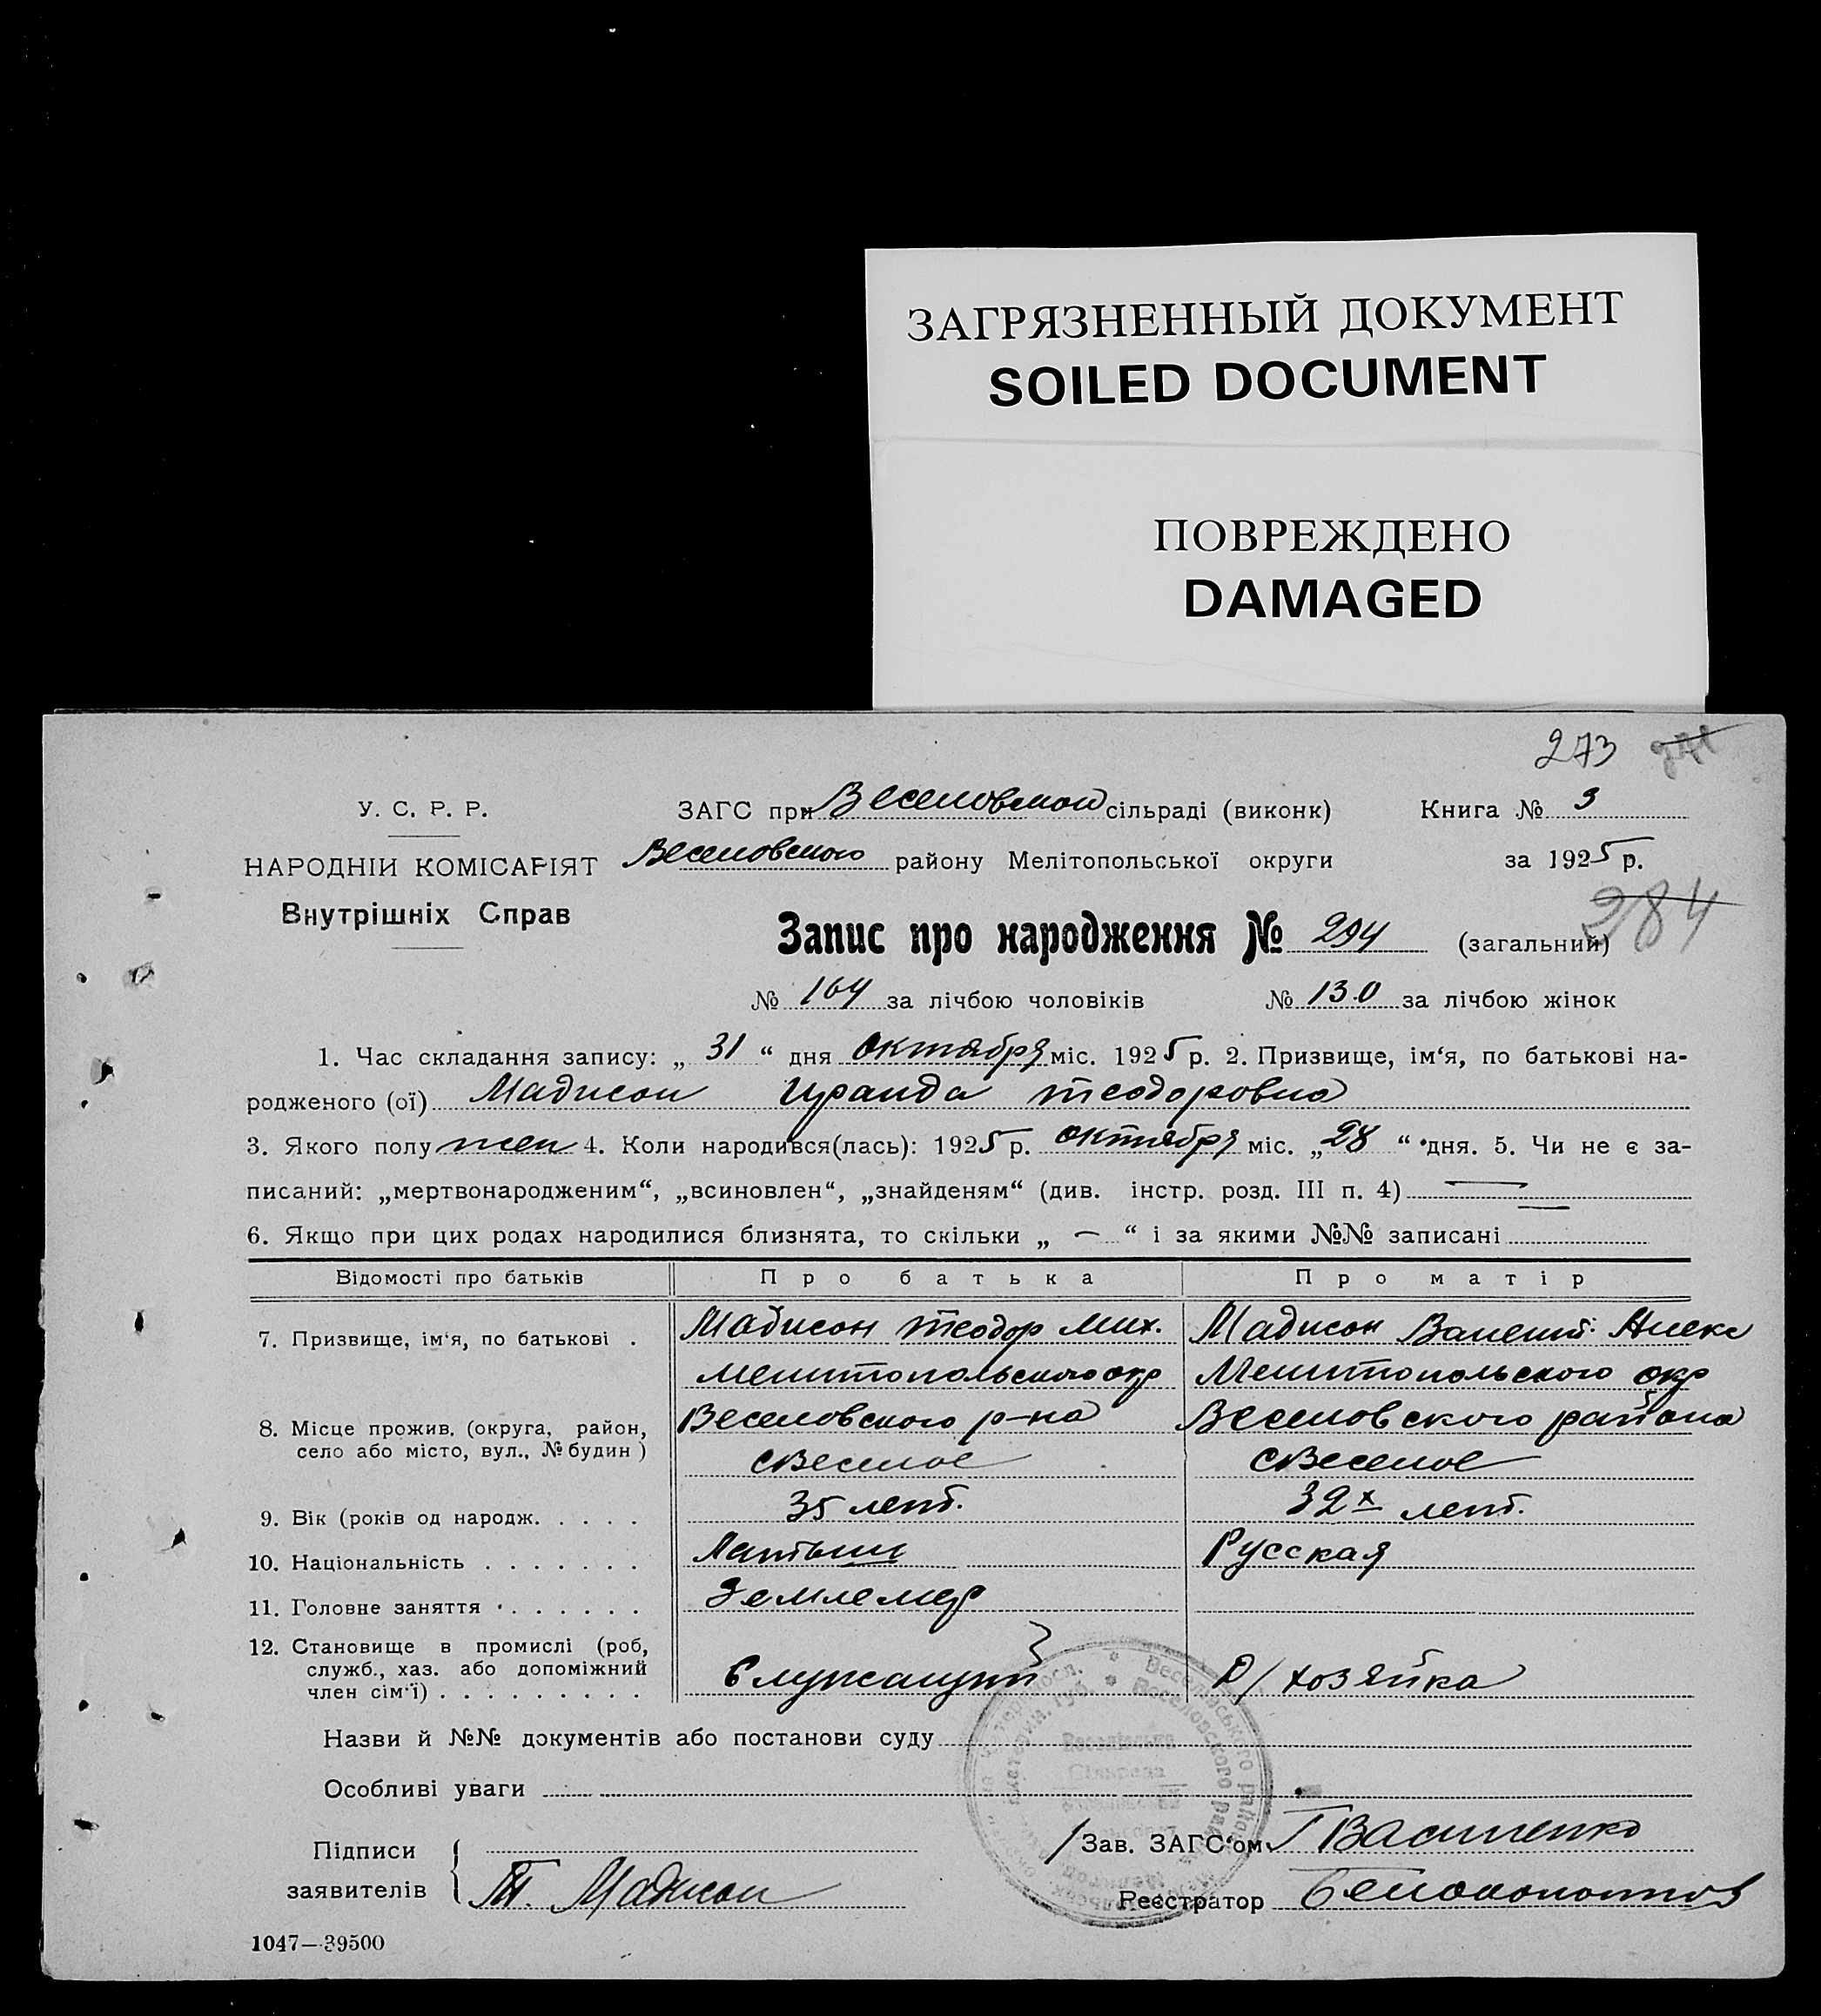 ЗАГРЯЗНЕННЫЙ ДОКУМЕНТ
SOILED DOCUMENT
ПОВРЕЖДЕНО
DAMAGED
273
У. С. Р. Р.
ЗАГС при Веселовском сільраді (виконк) Книга № 3
НАРОДНІЙ КОМІСАРІЯТ Веселовского району Мелітопольської округи за 1925 р.
Внутрішніх Справ
284
Запис про народження № 294 (загальний)
№ 164 за лічбою чоловіків № 130 за лічбою жінок
1. Час складання запису: „ 31 “ дня октября міс. 1925 р. 2. Призвище, ім‘я, по батькові на-
родженого (ої) Мадисон Ираида Теодоровна
3. Якого полу жен 4. Коли народився(лась): 1925 р. октября міс. „28 “ дня. 5. Чи не є за-
писаний: „мертвонародженим“, „всиновлен“, „знайденям“ (див. інстр. розд. III п. 4) —
6. Якщо при цих родах народилися близнята, то скільки „ — “ і за якими №№ записані
Відомості про батьків Про батька Про матір
7. Призвище, ім‘я, по батькові . Мадисон Теодор Мих. Мадисон Валент. Алекс
Мелитопольского окр Мелитопольского окр
8. Місце прожив. (округа, район, Веселовского р-на Веселовского района
село або місто, вул., № будин ) с Веселое с Веселое
9. Вік (років од народж. . . . . 35 лет. 32х лет.
10. Національність . . . . . . . Латыш Русская
11. Головне заняття . . . . . . Землемер
12. Становище в промислі (роб,
служб., хаз. або допоміжний Служащий Д/хозяйка
член сім‘ї) . . . . . . . . .
Назви й №№ документів або постанови суду
Особливі уваги
Підписи Зав. ЗАГС‘ом Василенко
заявителів Т. Мадисон Реєстратор
1047—39500